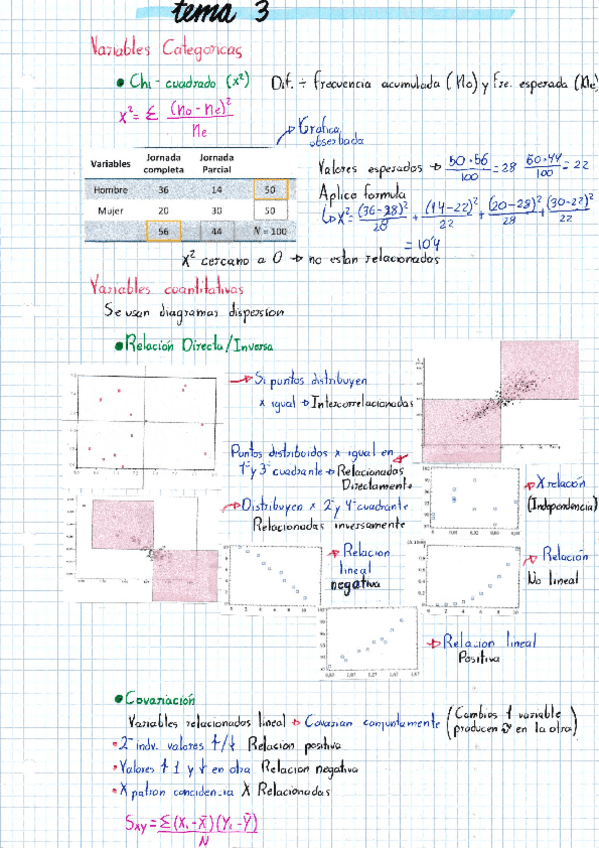 tema 3
Variables Categoricas
• Chi-cuadrado (x²) Dif. ÷ frecuencia acumulada (no) y Fre. esperada (ne)
x² = Σ (no - ne)² / ne
Grafica observada
Variables Jornada completa Jornada Parcial
Hombre 36 14 50
Mujer 20 30 50
56 44 N = 100
Valores esperados → 50·56/100 = 28 50·44/100 = 22
Aplico formula
x² = (36-28)²/28 + (14-22)²/22 + (20-28)²/28 + (30-22)²/22
= 10'4
x² cercano a 0 → no estan relacionados
Variables cuantitativas
Se usan diagramas dispersion
• Relación Directa/Inversa
→ Si puntos distribuyen
x igual → Intercorrelacionadas
Puntos distribuidos x igual en
1º y 3º cuadrante → Relacionadas
Directamente
→ Distribuyen x 2º y 4º cuadrante
Relacionadas inversamente
→ X relación
(Independencia)
→ Relacion
lineal
negativa
→ Relación
No lineal
→ Relacion lineal
Positiva
• Covariación
Variables relacionadas lineal → Covarian conjuntamente (Cambios 1 variable
producen en la otra)
• 2 indv. valores ↑/↓ Relacion positiva
• Valores ↑ 1 y ↓ en otra Relacion negativa
• X patron concidencia X Relacionadas
Sxy = Σ(Xi - X̄)(Yi - Ȳ) / N